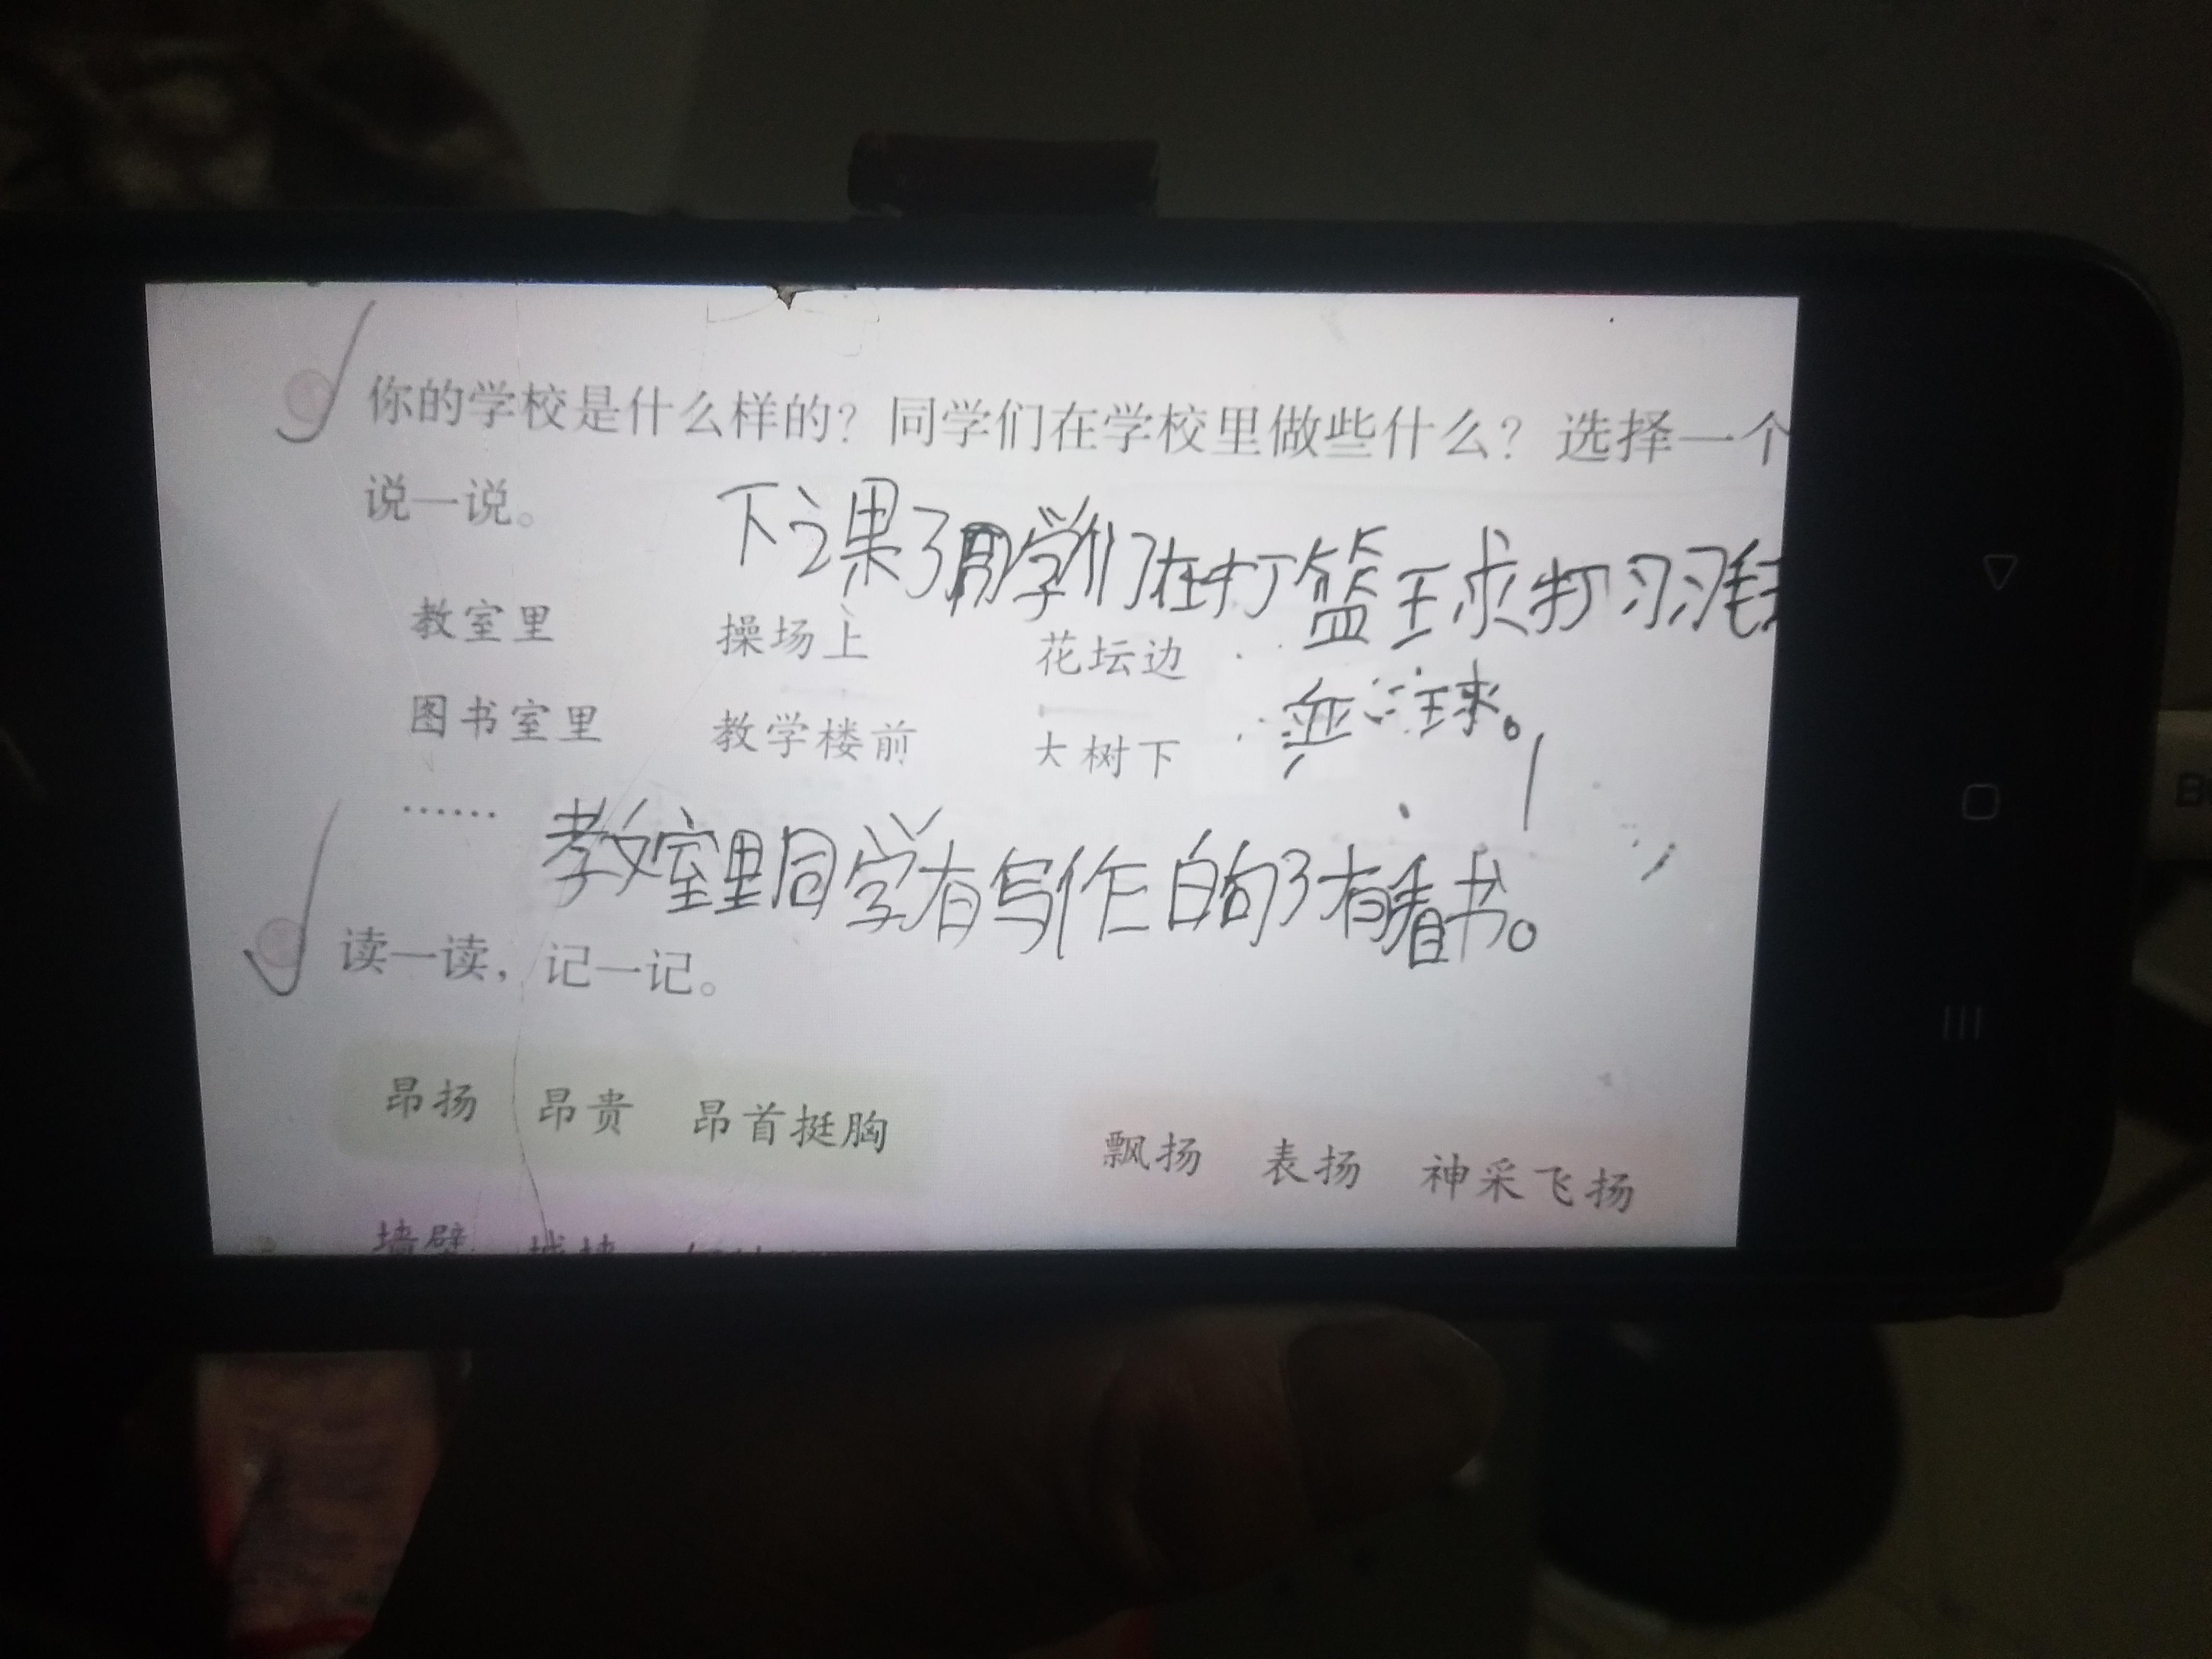 你的学校是什么样的？同学们在学校里做些什么？选择一个
说一说。
下课了同学们在打篮球打羽毛
教室里 操场上 花坛边
球。
图书室里 教学楼前 大树下
……
教室里同学有写作白勺了有看书。
读一读，记一记。
昂扬 昂贵 昂首挺胸
飘扬 表扬 神采飞扬
墙壁